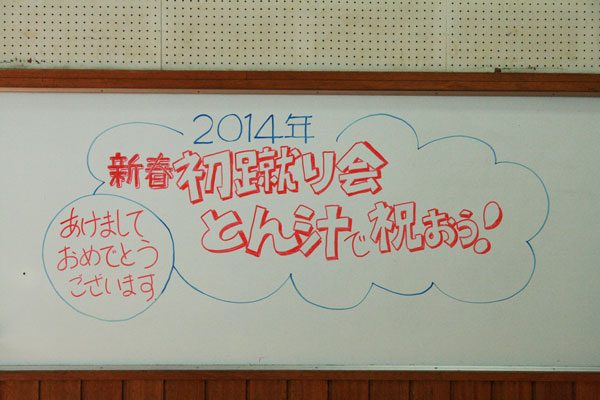 2014年
新春初蹴り会
とん汁で祝おう!
あけまして
おめでとう
ございます